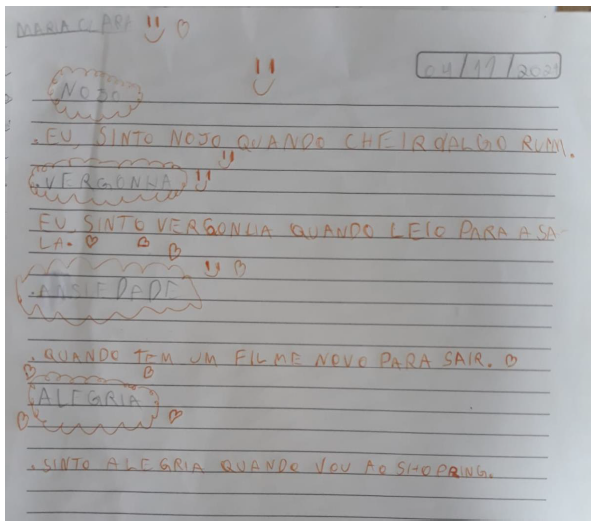 MARIA CLARA
04/11/2021
NOJO
.EU, SINTO NOJO QUANDO CHEIRO ALGO RUIM.
.VERGONHA
EU, SINTO VERGONHA QUANDO LEIO PARA A SA
LA.
.ANSIEDADE
.QUANDO TEM UM FILME NOVO PARA SAIR.
ALEGRIA
.SINTO ALEGRIA QUANDO VOU AO SHOPPING.